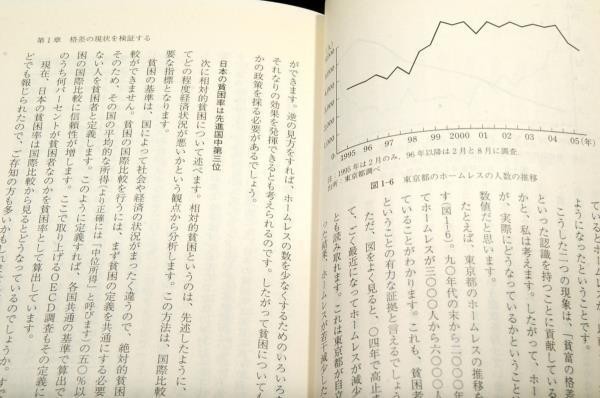 6,000
5,000
4,000
3,000
2,000
1,000
0
1995 96 97 98 99 2000 01 02 03 04 05(年)
注:1995年は2月のみ,96年以降は2月と8月に調査.
出所:東京都調べ
図1-6 東京都のホームレスの人数の推移
ているとか
ようになったということです。
こうした二つの現象は、「貧富の格
といった認識を持つことに貢献している
かと、私は考えます。したがって、ホー
が、実際にどうなっているかということに
数値だと思います。
たとえば、東京都のホームレスの推移を
(図1-6)。九〇年代の末から二〇〇〇年
てホームレスが三〇〇〇人から六〇〇〇人
ていることがわかります。これも、貧困者
ということの有力な証拠と言えるでしょう
ただ、図をよく見ると、〇四年で高止ま
て、ごく最近になってホームレスが減少
とも読み取れます。これは東京都が自立
った結果、ホームレスが若干減少した
第1章 格差の現状を検証する
ができます。逆の見方をすれば、ホームレスの数を少なくするためのいろいろ
それなりの効果を発揮できるとも考えられるのです。したがって貧困について
かの政策を採る必要があるでしょう。
日本の貧困率は先進国中第三位
次に相対的貧困について述べます。相対的貧困というのは、先述したように、
てどの程度経済状況が悪いかという観点から分析します。この方法は、国際比較
要な指標となります。
貧困の基準は、国によって社会や経済の状況がまったく違うので、絶対的貧困
較ができません。貧困の国際比較を行うには、まず貧困の定義を共通にする必要
そのため、その国の平均的な所得(より正確には「中位所得」と呼びます)の五〇%以
ない人を貧困者と定義します。このように定義すれば、各国共通の基準で算出で
困の国際比較に信頼性が増します。ここで取り上げるOECD調査もその定義に
のうち何パーセントが貧困者なのかを貧困率として算出しています。
現在、日本の貧困率は国際比較から見るとどうなっているのでしょうか。すで
どでも報じられたので、ご存知の方も多いかも